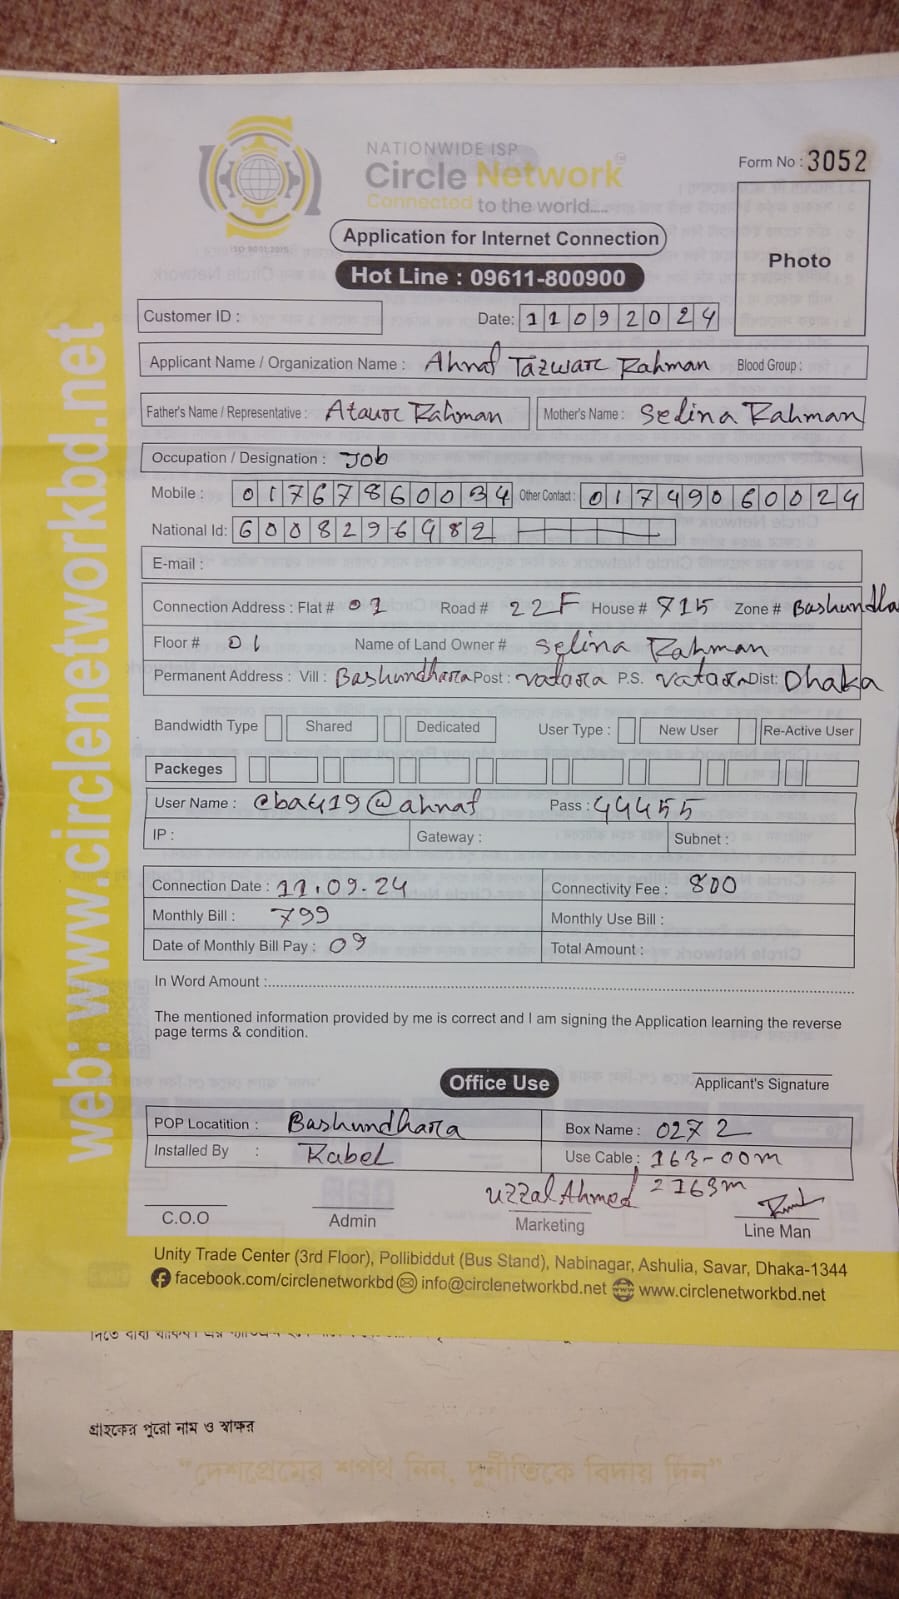 NATIONWIDE ISP
Circle Network
Connected to the world.....
ISO 9001:2015
Form No : 3052
Application for Internet Connection
Photo
Hot Line : 09611-800900
Customer ID :
Date: 11092024
Applicant Name / Organization Name : Ahnaf Tazwar Rahman Blood Group :
Father's Name / Representative : Ataur Rahman Mother's Name : Selina Rahman
Occupation / Designation : Job
Mobile : 01767860034 Other Contact : 01749060024
National Id: 6008296982
E-mail :
Connection Address : Flat # 01 Road # 22F House # 715 Zone # Bashundha
Floor # 01 Name of Land Owner # Selina Rahman
Permanent Address : Vill : Bashundhara Post : vatara P.S. vatara Dist: Dhaka
Bandwidth Type Shared Dedicated User Type : New User Re-Active User
Packeges
User Name : cba419@ahnaf Pass : 44455
IP : Gateway : Subnet :
Connection Date : 11.09.24 Connectivity Fee : 800
Monthly Bill : 799 Monthly Use Bill :
Date of Monthly Bill Pay : 09 Total Amount :
In Word Amount :
The mentioned information provided by me is correct and I am signing the Application learning the reverse
page terms & condition.
Office Use
Applicant's Signature
POP Locatition : Bashundhara Box Name : 0272
Installed By : Rabel Use Cable : 163-00m
Uzzal Ahmed = 163m
C.O.O Admin Marketing Line Man
Unity Trade Center (3rd Floor), Pollibiddut (Bus Stand), Nabinagar, Ashulia, Savar, Dhaka-1344
facebook.com/circlenetworkbd info@circlenetworkbd.net www.circlenetworkbd.net
web: www.circlenetworkbd.net
গ্রাহকের পুরো নাম ও স্বাক্ষর
“দেশপ্রেমের শপথ নিন, দুর্নীতিকে বিদায় দিন”